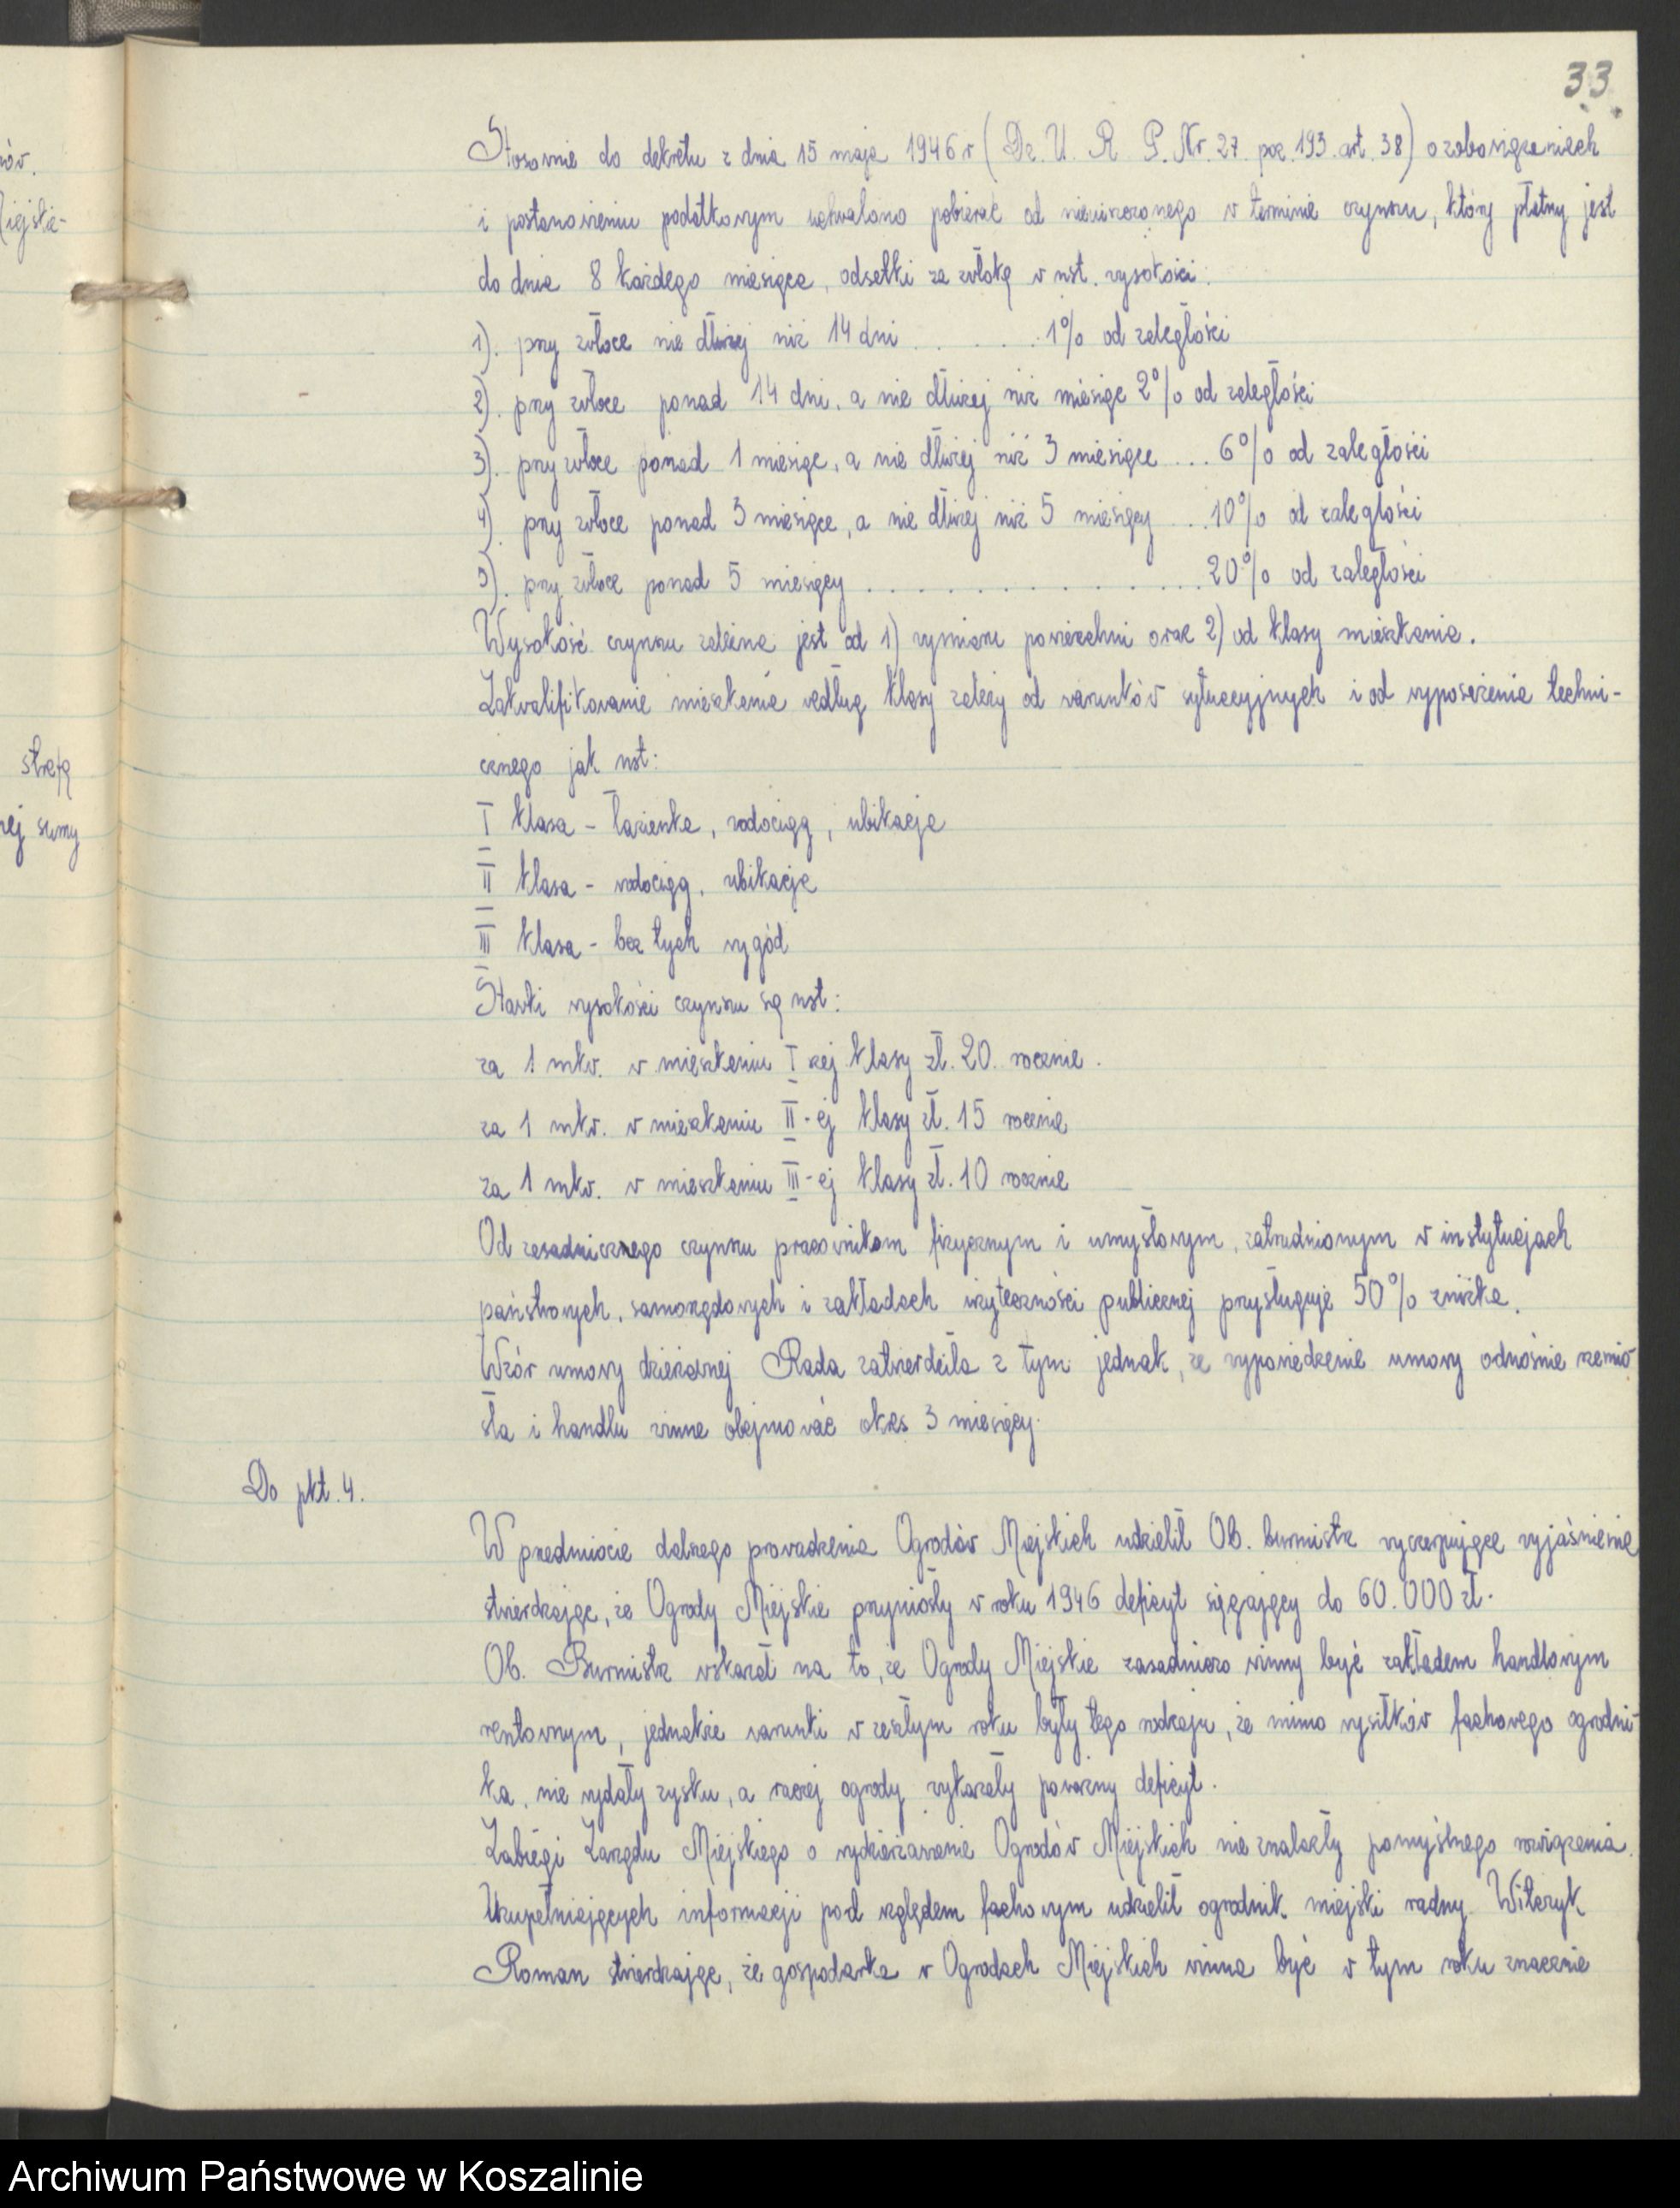 33
Stosownie do dekretu z dnia 15 maja 1946 r (Dz. U. R. P. Nr. 27. poz. 193. art. 38) o zobowiązaniach
i postanowieniu podatkowym uchwalono pobierać od nieuiszczonego w terminie czynszu, który płatny jest
do dnia 8 każdego miesiąca, odsetki za zwłokę w nst. wysokości:
1). przy zwłoce nie dłużej niż 14 dni . . . . . . 1% od zaległości
2). przy zwłoce ponad 14 dni, a nie dłużej niż miesiąc 2% od zaległości
3). przy zwłoce ponad 1 miesiąc, a nie dłużej niż 3 miesiące ... 6% od zaległości
4). przy zwłoce ponad 3 miesiące, a nie dłużej niż 5 miesięcy ... 10% od zaległości
5). przy zwłoce ponad 5 miesięcy . . . . . . . . . . . . . 20% od zaległości
Wysokość czynszu zależna jest od 1) wymiaru powierzchni oraz 2) od klasy mieszkania.
Zakwalifikowanie mieszkania według klasy zależy od warunków sytuacyjnych i od wyposażenia techni-
cznego jak nst:
I klasa - łazienka, wodociąg, ubikacja
II klasa - wodociąg, ubikacja
III klasa - bez tych wygód
Stawki wysokości czynszu są nst:
za 1 mkw. w mieszkaniu I szej klasy zł. 20. rocznie.
za 1 mkw. w mieszkaniu II-ej klasy zł. 15 rocznie
za 1 mkw. w mieszkaniu III-ej klasy zł. 10 rocznie
Od zasadniczego czynszu pracownikom fizycznym i umysłowym, zatrudnionym w instytucjach
państwowych, samorządowych i zakładach użyteczności publicznej przysługuje 50% zniżka.
Wzór umowy dzierżawnej Rada zatwierdziła z tym jednak, że wypowiedzenie umowy odnośnie rzemio-
sła i handlu winna obejmować okres 3 miesięcy.
Do pkt. 4.
W przedmiocie dalszego prowadzenia Ogrodów Miejskich udzielił Ob. burmistrz wyczerpujące wyjaśnienie
stwierdzając, że Ogrody Miejskie przyniosły w roku 1946 deficyt sięgający do 60.000 zł.
Ob. Burmistrz wskazał na to, że Ogrody Miejskie zasadniczo winny być zakładem handlowym
rentownym, jednakże warunki w zeszłym roku były tego rodzaju, że mimo wysiłków fachowego ogrodni-
ka, nie wydały zysku, a raczej ogrody wykazały poważny deficyt.
Zabiegi Zarządu Miejskiego o wydzierżawienie Ogrodów Miejskich nie znalazły pomyślnego rozwiązania.
Uzupełniających informacji pod względem fachowym udzielił ogrodnik miejski radny Witczyk
Roman stwierdzając, że gospodarka w Ogrodach Miejskich winna być w tym roku znacznie
ów.
Miejska-
stratę
nej sumy
Archiwum Państwowe w Koszalinie